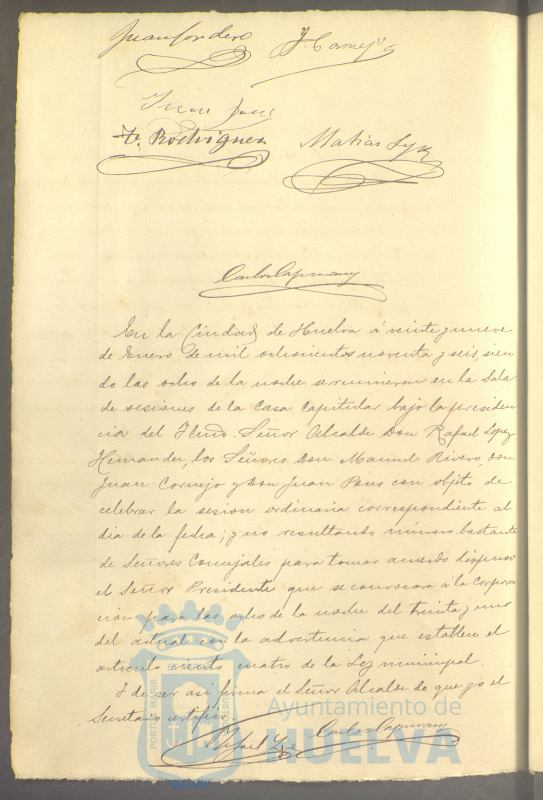 Juan Cordero J. Cornejo
Juan Pons
F. Rodriguez Matias
Carlos Capmany
En la Ciudad de Huelva á veinte y nueve
de Enero de mil ochocientos noventa y seis, sien
do las ocho de la noche se reunieron en la Sala
de sesiones de la casa Capitular bajo la presiden
cia del Iltmo. Señor Alcalde Don Rafael Lopez
Hernandez, los Señores Don Manuel Rivero, Don
Juan Cornejo y Don Juan Pons con objeto de
celebrar la sesion ordinaria correspondiente al
dia de la fecha; y no resultando número bastante
de Señores Concejales para tomar acuerdo dispuso
el Señor Presidente que se convocara á la Corpora
cion para las ocho de la noche del treinta y uno
del actual con la advertencia que establece el
articulo ciento cuatro de la Ley municipal.
Y de ser asi firma el Señor Alcalde de que yo el
Secretario certifico.
Rafael Carlos Capmany
Ayuntamiento de
HUELVA
PORTUS MARIS